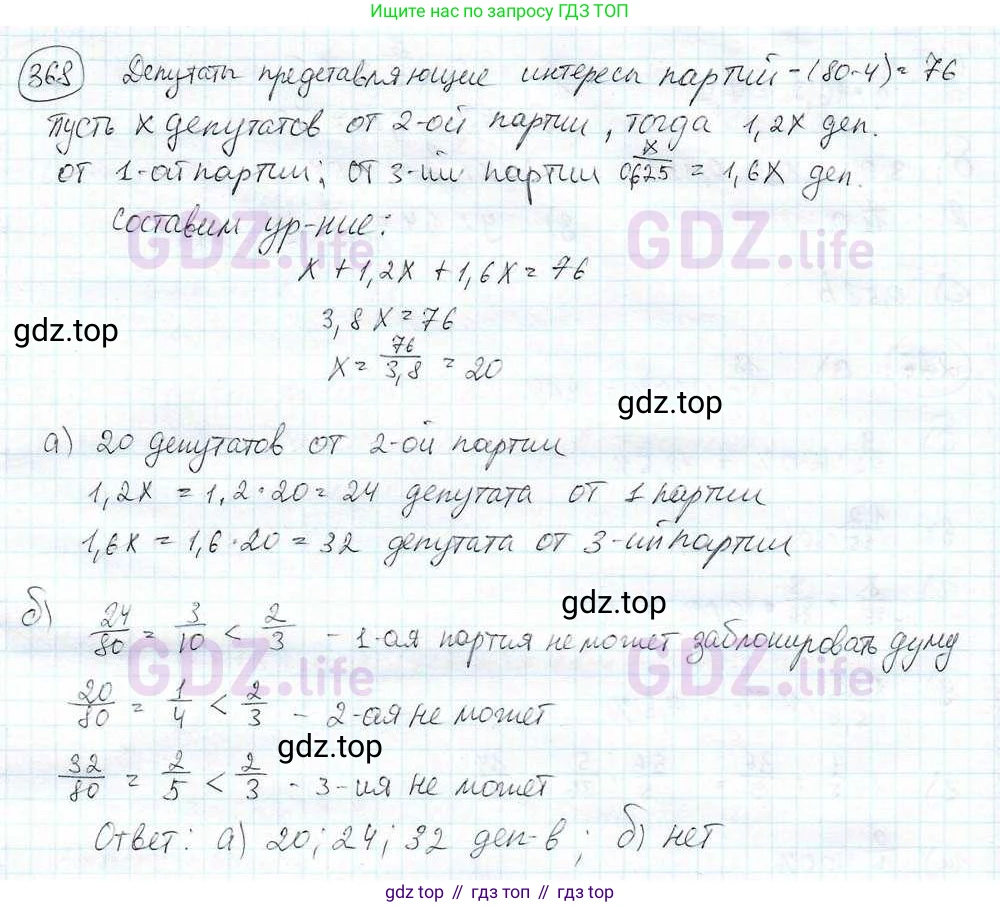 Ищите нас по запросу ГДЗ ТОП
368 Депутаты представляющие интересы партий - (80-4) = 76
Пусть x депутатов от 2-ой партии, тогда 1,2x деп.
от 1-ой партии; от 3-ий партии x/0,625 = 1,6x деп.
Составим ур-ние:
GDZ.life GDZ.life
x + 1,2x + 1,6x = 76
3,8x = 76
gdz.top
x = 76/3,8 = 20
gdz.top
а) 20 депутатов от 2-ой партии
1,2x = 1,2·20 = 24 депутата от 1 партии
1,6x = 1,6·20 = 32 депутата от 3-ий партии
gdz.top
б) 24/80 = 3/10 < 2/3 - 1-ая партия не может заблокировать думу
GDZ.life GDZ.life
20/80 = 1/4 < 2/3 - 2-ая не может
gdz.top
32/80 = 2/5 < 2/3 - 3-ия не может
Ответ: а) 20; 24; 32 деп-в; б) нет
gdz.top // гдз топ // gdz top